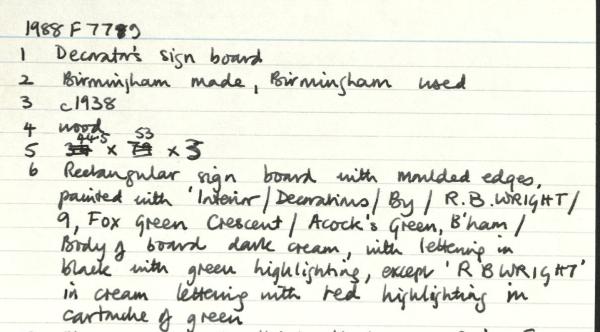 1988 F 7789
1 Decorator's sign board
2 Birmingham made, Birmingham used
3 c1938
4 wood
5 44.5 53 x x 3
6 Rectangular sign board with moulded edges,
painted with 'Interior/Decorations/By/ R.B.WRIGHT/
9, Fox Green Crescent/ Acock's Green, B'ham/
Body of board dark cream, with lettering in
black with green highlighting, except 'R B WRIGHT'
in cream lettering with red highlighting in
cartouche of green